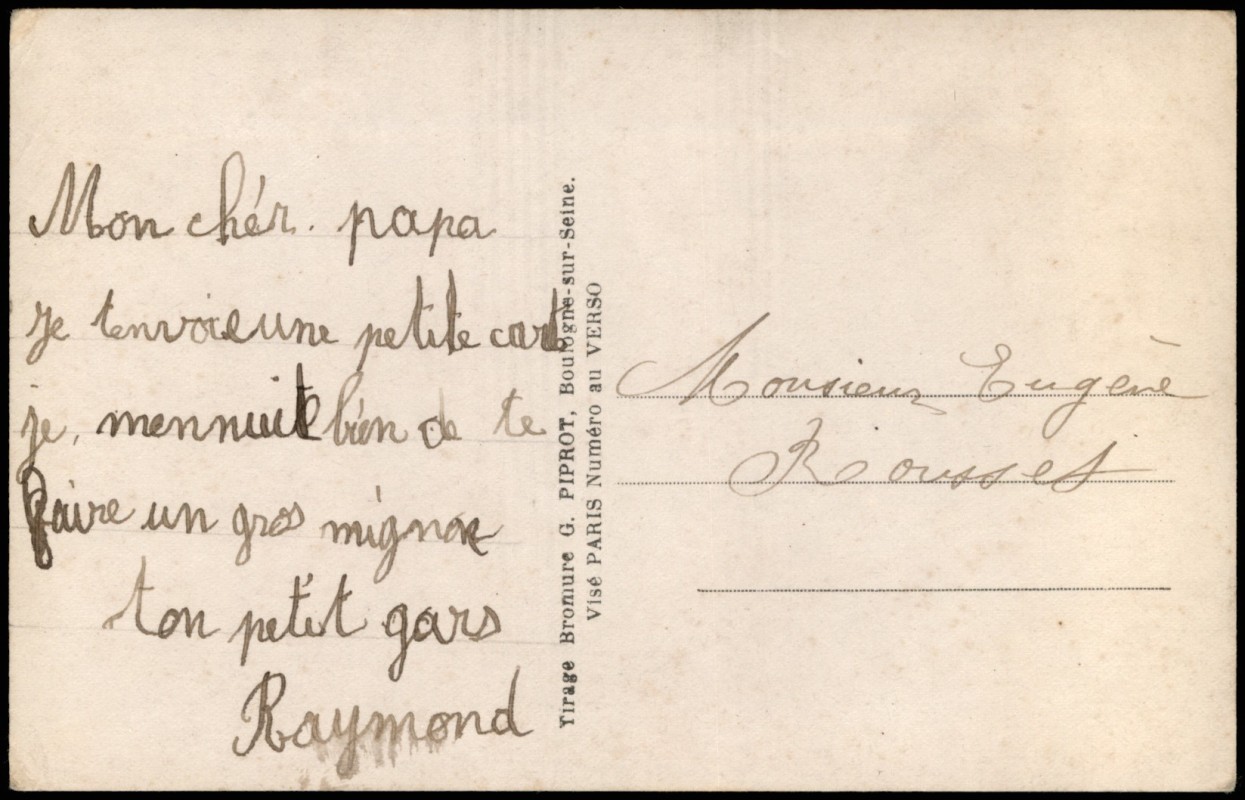 Mon chér. papa
je tenvoie une petite carte
je, mennuit bien de te
faire un gros mignon
ton petit gars
Raymond
Tirage Bromure G. PIPROT, Boulogne-sur-Seine.
Visé PARIS Numéro au VERSO
Monsieur Eugène
Rousset